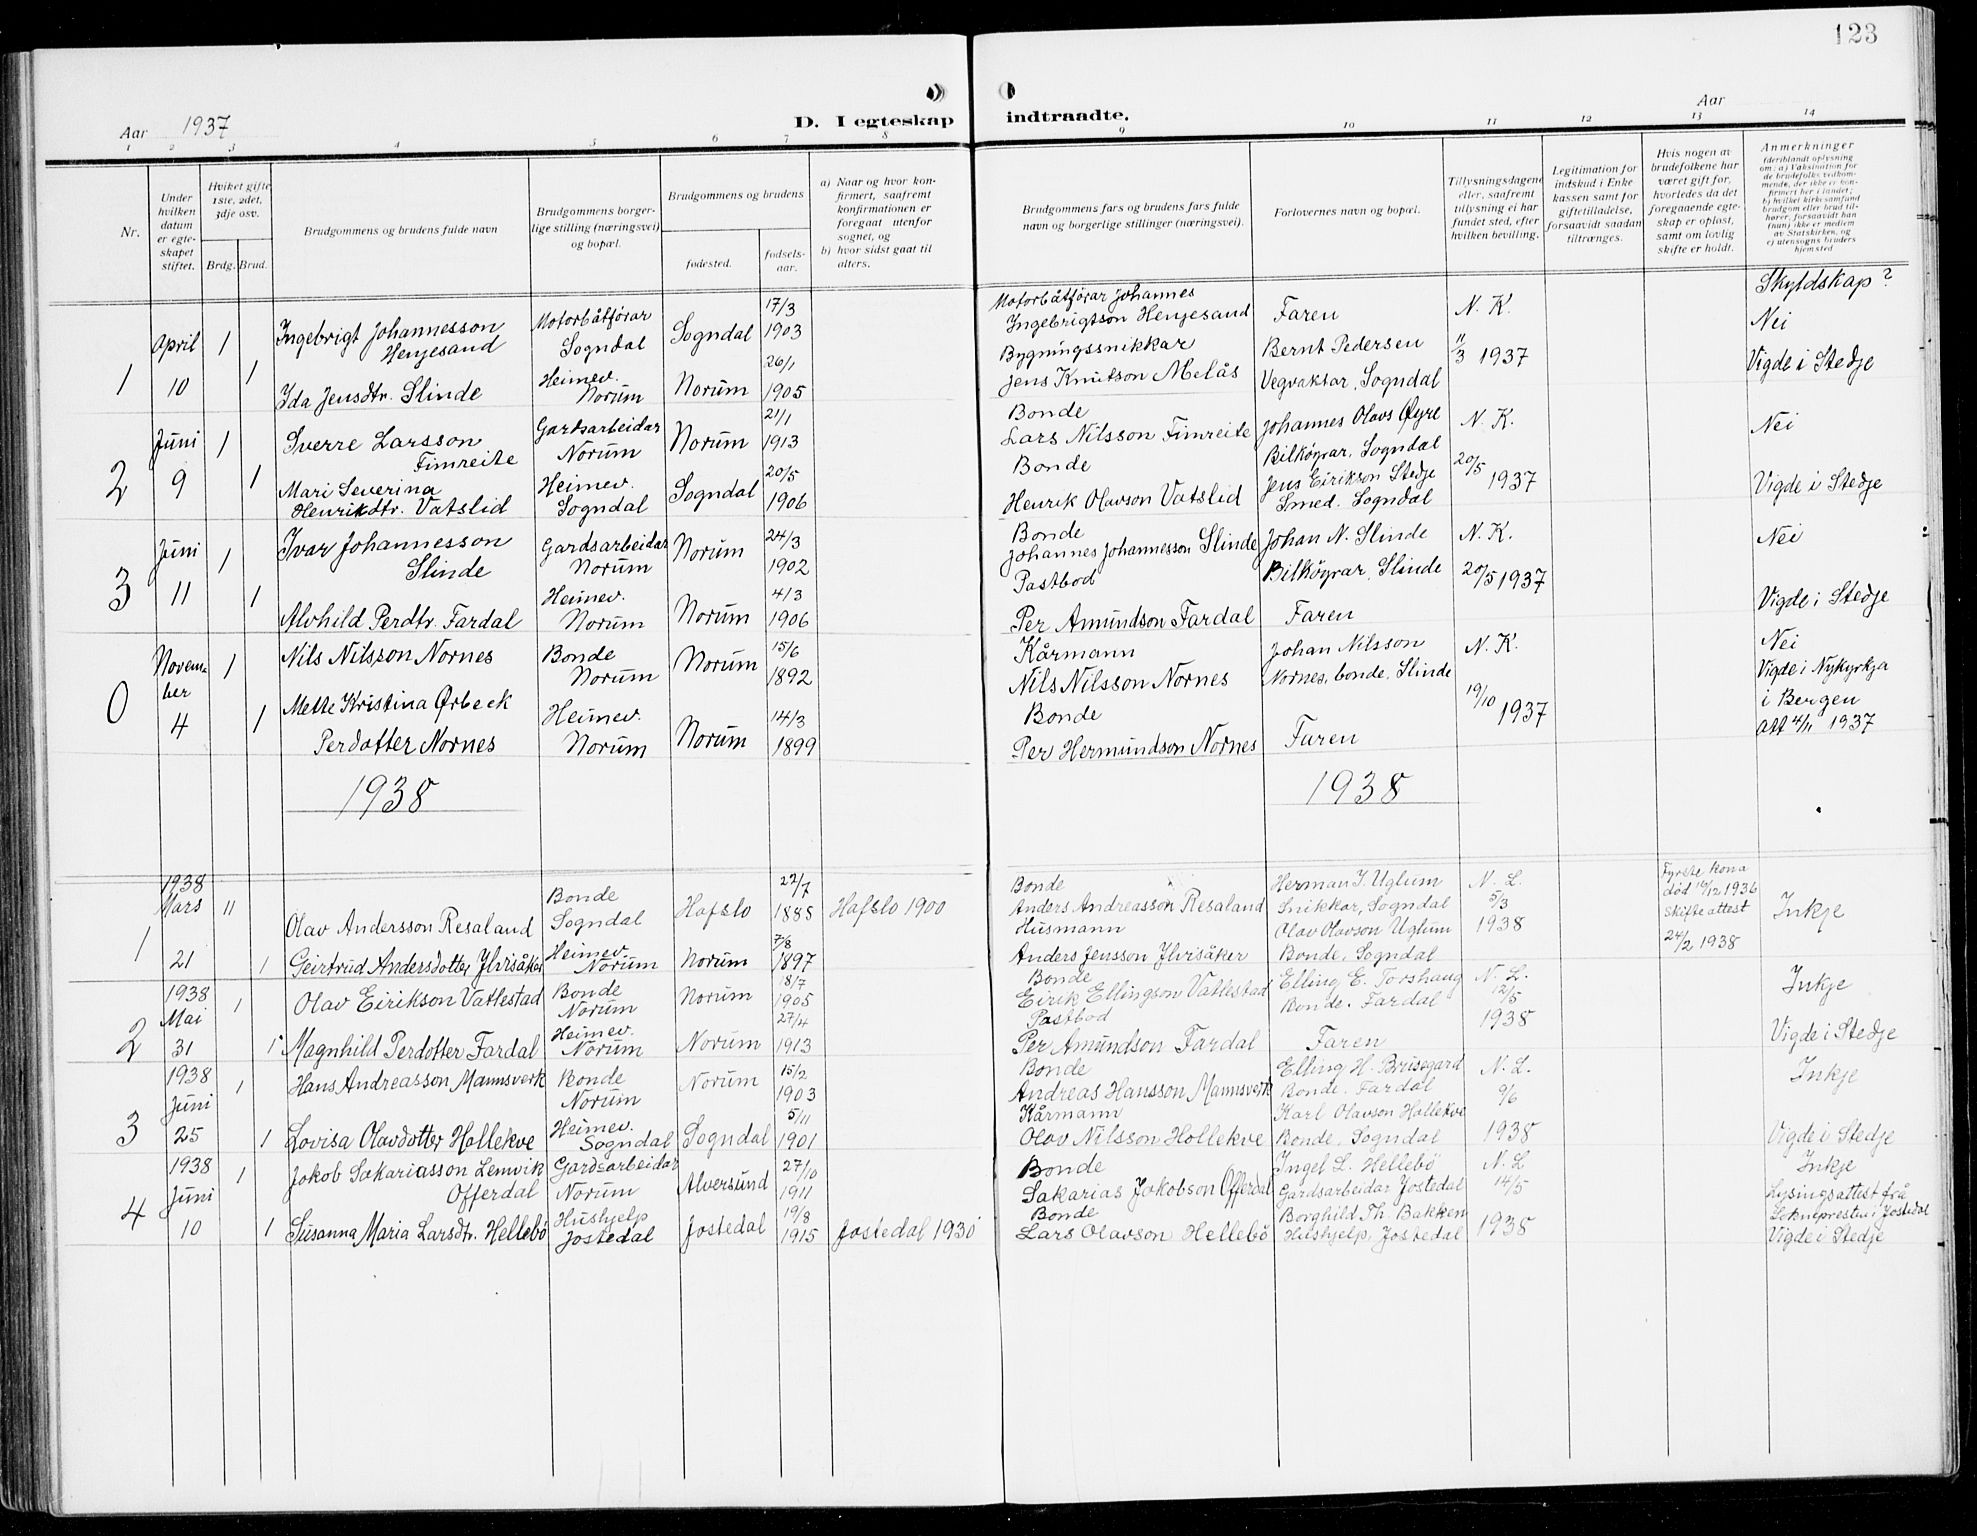 123
Aar 1937
D. I egteskap indtraadte.
Aar
1 2 3 4 5 6 7 8 9 10 11 12 13 14
Nr.
Under hvilken datum er egteskapet stiftet.
Hviket gifte 1ste, 2det, 3dje osv.
Brdg. Brud.
Brudgommens og brudens fulde navn
Brudgommens borgerlige stilling (næringsvei) og bopæl.
Brudgommens og brudens
fødested.
fødselsaar.
a) Naar og hvor konfirmert, saafremt konfirmationen er foregaat utenfor sognet, og
b) hvor sidst gaat til alters.
Brudgommens fars og brudens fars fulde navn og borgerlige stillinger (næringsvei).
Forlovernes navn og bopæl.
Tillysningsdagene eller, saafremt tillysning ei har fundet sted, efter hvilken bevilling.
Legitimation for indskud i Enkekassen samt for giftetilladelse, forsaavidt saadan tiltrænges.
Hvis nogen av brudefolkene har været gift før, hvorledes da det foregaaende egteskap er opløst, samt om lovlig skifte er holdt.
Anmerkninger
(deriblandt oplysning om: a) Vaksination for de brudefolks vedkommende, der ikke er konfirmert her i landet; b) hvilket kirkesamfund brudgom eller brud tilhører, forsaavidt han (hun) ikke er medlem av Statskirken, og c) utensogns bruders hjemsted
Skyldskap?
1 April 10 1 Ingebrigt Johannesson Henjesand Motorbåtførar Sogndal Sogndal 17/3 1903 Motorbåtførar Johannes Ingebrigtson Henjesand Faren N. K. Nei
1 Ida Jensdtr. Slinde Heimev. Norum Norum 26/1 1905 Bygningssnikkar Jens Knutson Melås Bernt Pedersen Vegvaktar, Sogndal 11/3 1937 Vigde i Stedje
2 Juni 9 1 Sverre Larsson Fimreite Gardsarbeidar Norum Norum 21/1 1913 Bonde Lars Nilsson Fimreite Johannes Olavs Øyre Bilkøyrar, Sogndal N. K. Nei
1 Mari Severina Henrikdtr. Vatslid Heimev. Sogndal Sogndal 20/5 1906 Bonde Henrik Olavson Vatslid Jens Eirikson Stedje Smed. Sogndal 20/5 1937 Vigde i Stedje
3 Juni 11 1 Ivar Johannesson Slinde Gardsarbeidar Norum Norum 24/3 1902 Bonde Johannes Johannesson Slinde Johan N. Slinde Bilkøyrar, Slinde N. K. Nei
1 Alvhild Perdtr. Fardal Heimev. Norum Norum 4/3 1906 Postbod Per Amundson Fardal Faren 20/5 1937 Vigde i Stedje
0 November 4 1 Nils Nilsson Nornes Bonde Norum Norum 15/6 1892 Kårmann Nils Nilsson Nornes Johan Nilsson Nornes, bonde, Slinde N. K. Nei
1 Mette Kristina Ørbeck Perdotter Nornes Heimev. Norum Norum 14/3 1899 Bonde Per Hermundson Nornes Faren 19/10 1937 Vigde i Nykyrkja i Bergen att 4/11 1937
1938 1938
1 1938 Mars 21 11 Olav Andersson Resaland Bonde Sogndal Hafslo 22/7 1888 Hafslo 1900 Bonde Anders Andreasson Resaland Herman J. Uglum Snikkar, Sogndal N. L. 5/3 1938 Fyrste kona død 10/12 1936 Skifteattest 24/2 1938 Inkje
1 Geirtrud Andersdotter Ylvisåker Heimev. Norum Norum 7/8 1897 Husmann Anders Jensson Ylvisåker Olav Olavson Uglum Bonde, Sogndal
2 1938 Mai 31 1 Olav Eirikson Vatlestad Bonde Norum Norum 18/7 1905 Bonde Eirik Ellingson Vatlestad Elling E. Torshaug Bonde. Fardal N. L. 2/5 1938 Inkje
1 Magnhild Perdotter Fardal Heimev. Norum Norum 27/4 1913 Postbod Per Amundson Fardal Faren Vigde i Stedje
3 1938 Juni 25 1 Hans Andreasson Mannsverk Bonde Norum Norum 15/2 1903 Bonde Andreas Hansson Mannsverk Elling H. Brusegard Bonde. Fardal N. L. 9/6 1938 Inkje
1 Lovisa Olavdotter Hollekve Heimev. Sogndal Sogndal 5/11 1901 Kårmann Olav Nilsson Hollekve Karl Olavson Hollekve Bonde, Sogndal Vigde i Stedje
4 1938 Juni 10 1 Jakob Sakariasson Lemvik Offerdal Gardsarbeidar Norum Alversund 27/10 1911 Bonde Sakarias Jakobson Offerdal Ingel L. Hellebø Gardsarbeidar Jostedal N. L 14/5 1938 Inkje
1 Susanna Maria Larsdtr. Hellebø Hushjelp Jostedal Jostedal 19/8 1915 Jostedal 1930 Bonde Lars Olavson Hellebø Borghild Th. Bakken Hushjelp, Jostedal Lysingsattest frå Soknepresten i Jostedal Vigde i Stedje